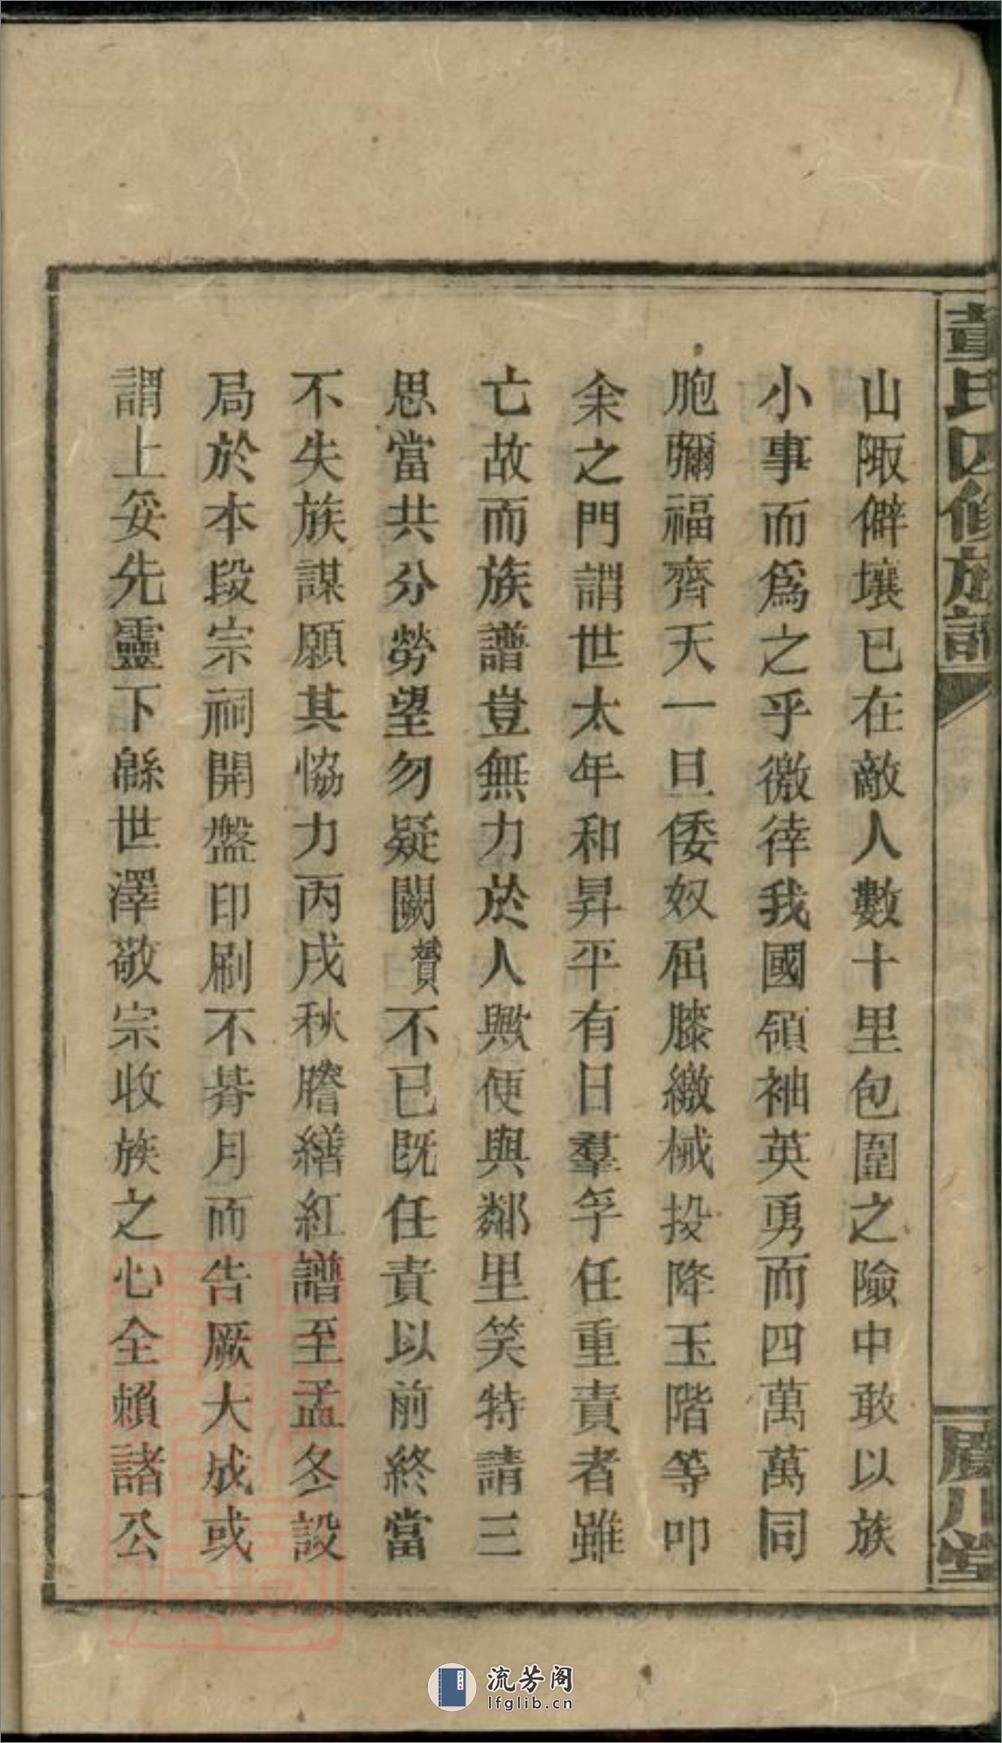 董氏四修族譜
廣川堂
山陬僻壤已在敵人數十里包圍之險中敢以族
小事而爲之乎徼倖我國領袖英勇而四萬萬同
胞彌福齊天一旦倭奴屈膝繳械投降玉階等叩
余之門謂世太年和昇平有日羣孚任重責者雖
亡故而族譜豈無力於人歟便與鄰里笑特請三
思當共分勞望勿疑闕贊不已既任責以前終當
不失族謀願其恊力丙戌秋謄繕紅譜至孟冬設
局於本段宗祠開盤印刷不朞月而告厥大成或
謂上妥先靈下緜世澤敬宗收族之心全賴諸公
流芳阁
lfglib.cn